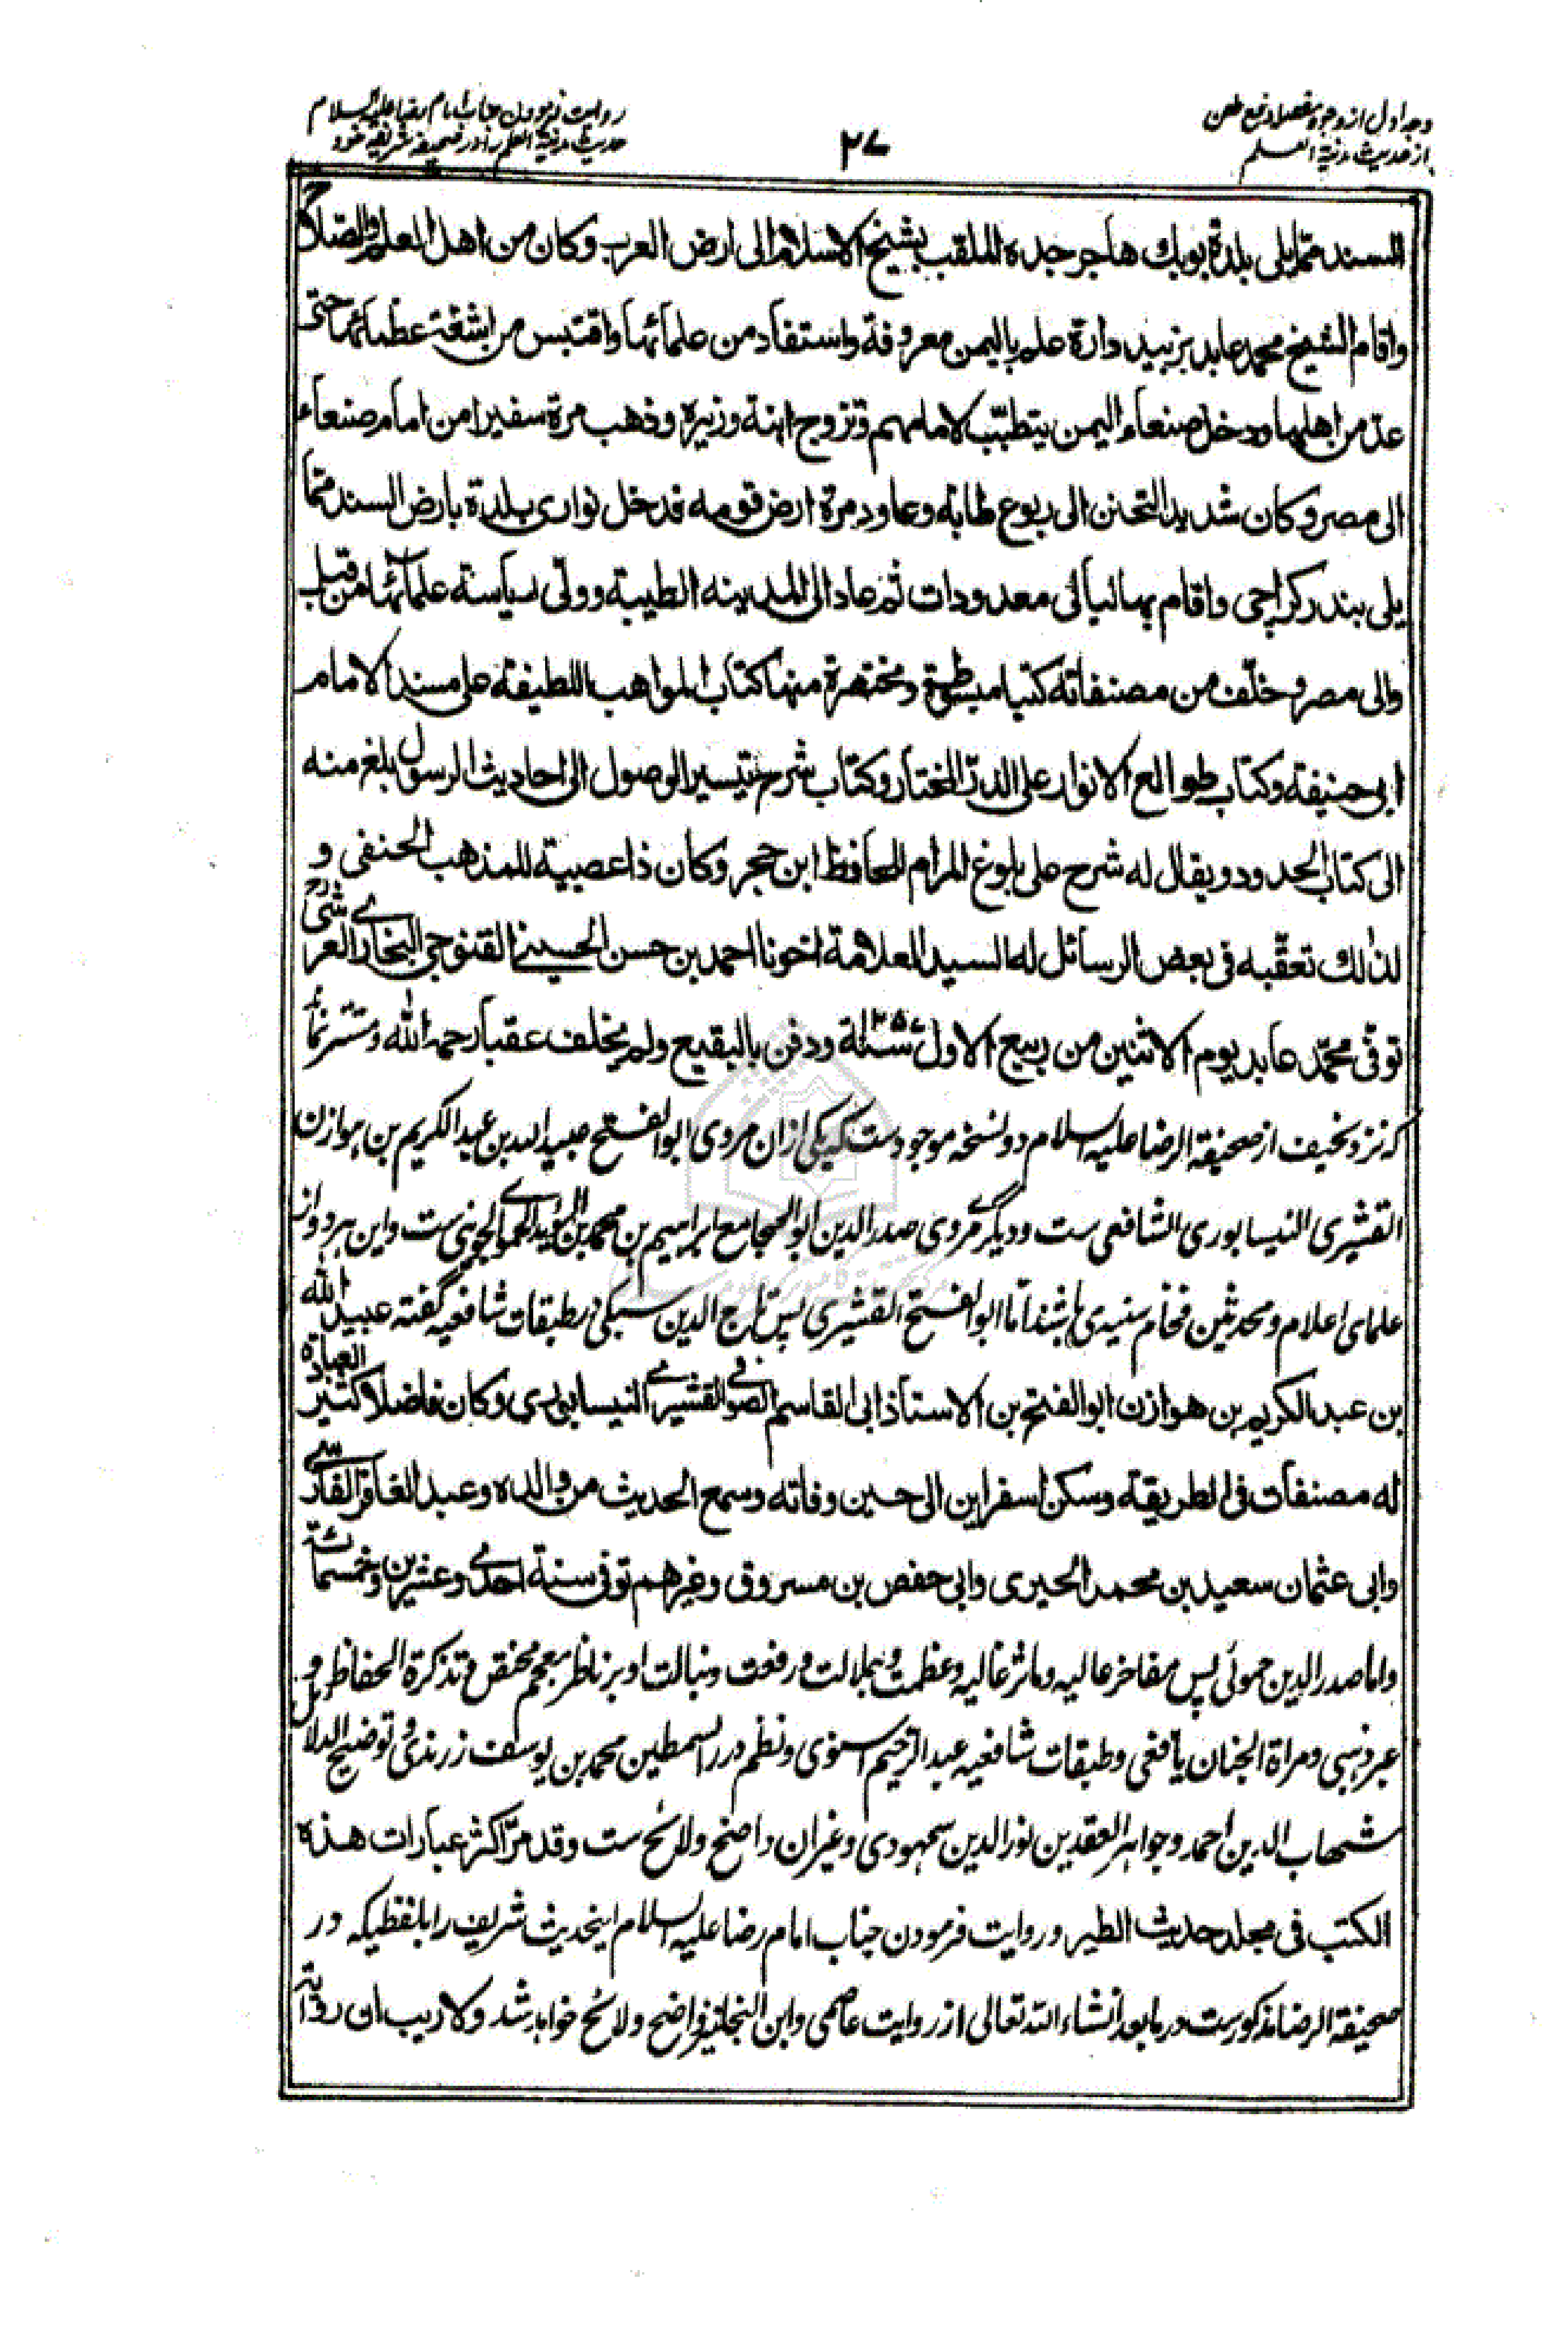 وجه اول از وجوه مفصله دفع طعن
از حدیث مدینة العلم
٢٧
روایت فرمودن جناب امام رضا علیه السلام
حدیث مدینة العلم را در صحیفه شریفه خود
السند مما یلی بلدة بوبك هاجر جده الملقب بشیخ الاسلام الی ارض العرب وكان من اهل العلم والصلاح
واقام الشیخ محمد عابد بزبید دارة علم بالیمن معروفة واستفاد من علمائها واقتبس من اشعة عظمائها حتی
عد من اهلها ودخل صنعاء الیمن یتطبب لامامهم وتزوج ابنة وزیره وذهب مرة سفیرا من امام صنعاء
الی مصر وكان شدید التحنن الی ربوع طابة وعاود مرة ارض قومه فدخل نواری بلدة بارض السند مما
یلی بندر کراچی واقام بها لیالی معدودات ثم عاد الی المدینه الطیبة وولی ریاسة علمائها من قبل
والی مصر وخلف من مصنفاته كتبا مبسوطة ومختصرة منها كتاب المواهب اللطیفة علی مسند الامام
ابی حنیفة وكتاب طوالع الانوار علی الدر المختار وكتاب شرح تیسیر الوصول الی احادیث الرسول بلغ منه
الی كتاب الحدود ویقال له شرح علی بلوغ المرام للحافظ ابن حجر وكان ذا عصبیة للمذهب الحنفی و
لذلك تعقبه فی بعض الرسائل له السید العلامة اخونا احمد بن حسن الحسینی القنوجی البخاری العرشی رح
توفی محمد عابد یوم الاثنین من ربیع الاول سنة ١٢٥٧ ودفن بالبقیع ولم یخلف عقبا رحمه الله ومستتر نماند
که نزد نحیف از صحیفة الرضا علیه السلام دو نسخه موجودست که یکی ازان مروی ابو الفتح عبید الله بن عبد الکریم بن هوازن
القشیری النیسابوری الشافعی ست و دیگری مروی صدر الدین ابو المجامع ابراهیم بن محمد بن الموید الحموی الجوینی ست و این هر دو از
علمای اعلام و محدثین فخام سنیه می باشند اما ابو الفتح القشیری پس تاج الدین سبکی در طبقات شافعیه گفته عبید الله
بن عبد الكریم بن هوازن ابو الفتح بن الاستاذ ابی القاسم الصوفی القشیری النیسابوری وكان فاضلا كثیر العبادة
له مصنفات فی الطریقة وسكن اسفراین الی حین وفاته وسمع الحدیث من والده وعبد الغافر الفارسی
وابی عثمان سعید بن محمد الحیری وابی حفص بن مسروق وغیرهم توفی سنة احدی وعشرین وخمسمائة
و اما صدر الدین حموئی پس مفاخر عالیه و مآثر غالیه و عظمت و جلالت و رفعت و نبالت او بر ناظر معجم مختص و تذکرة الحفاظ و
عبر ذهبی و مرآة الجنان یافعی و طبقات شافعیه عبد الرحیم اسنوی و نظم درر السمطین محمد بن یوسف زرندی و توضیح الدلائل
شهاب الدین احمد و جواهر العقدین نور الدین سمهودی و غیر آن واضح و لائح ست وقد مر اکثر عبارات هذه
الكتب فی مجلد حدیث الطیر و روایت فرمودن جناب امام رضا علیه السلام اینحدیث شریف را بلفظیکه در
صحیفة الرضا مذکورست در ما بعد انشاء الله تعالی از روایت عاصمی و ابن النجار نیز واضح و لائح خواهد شد ولا ریب ان روایة